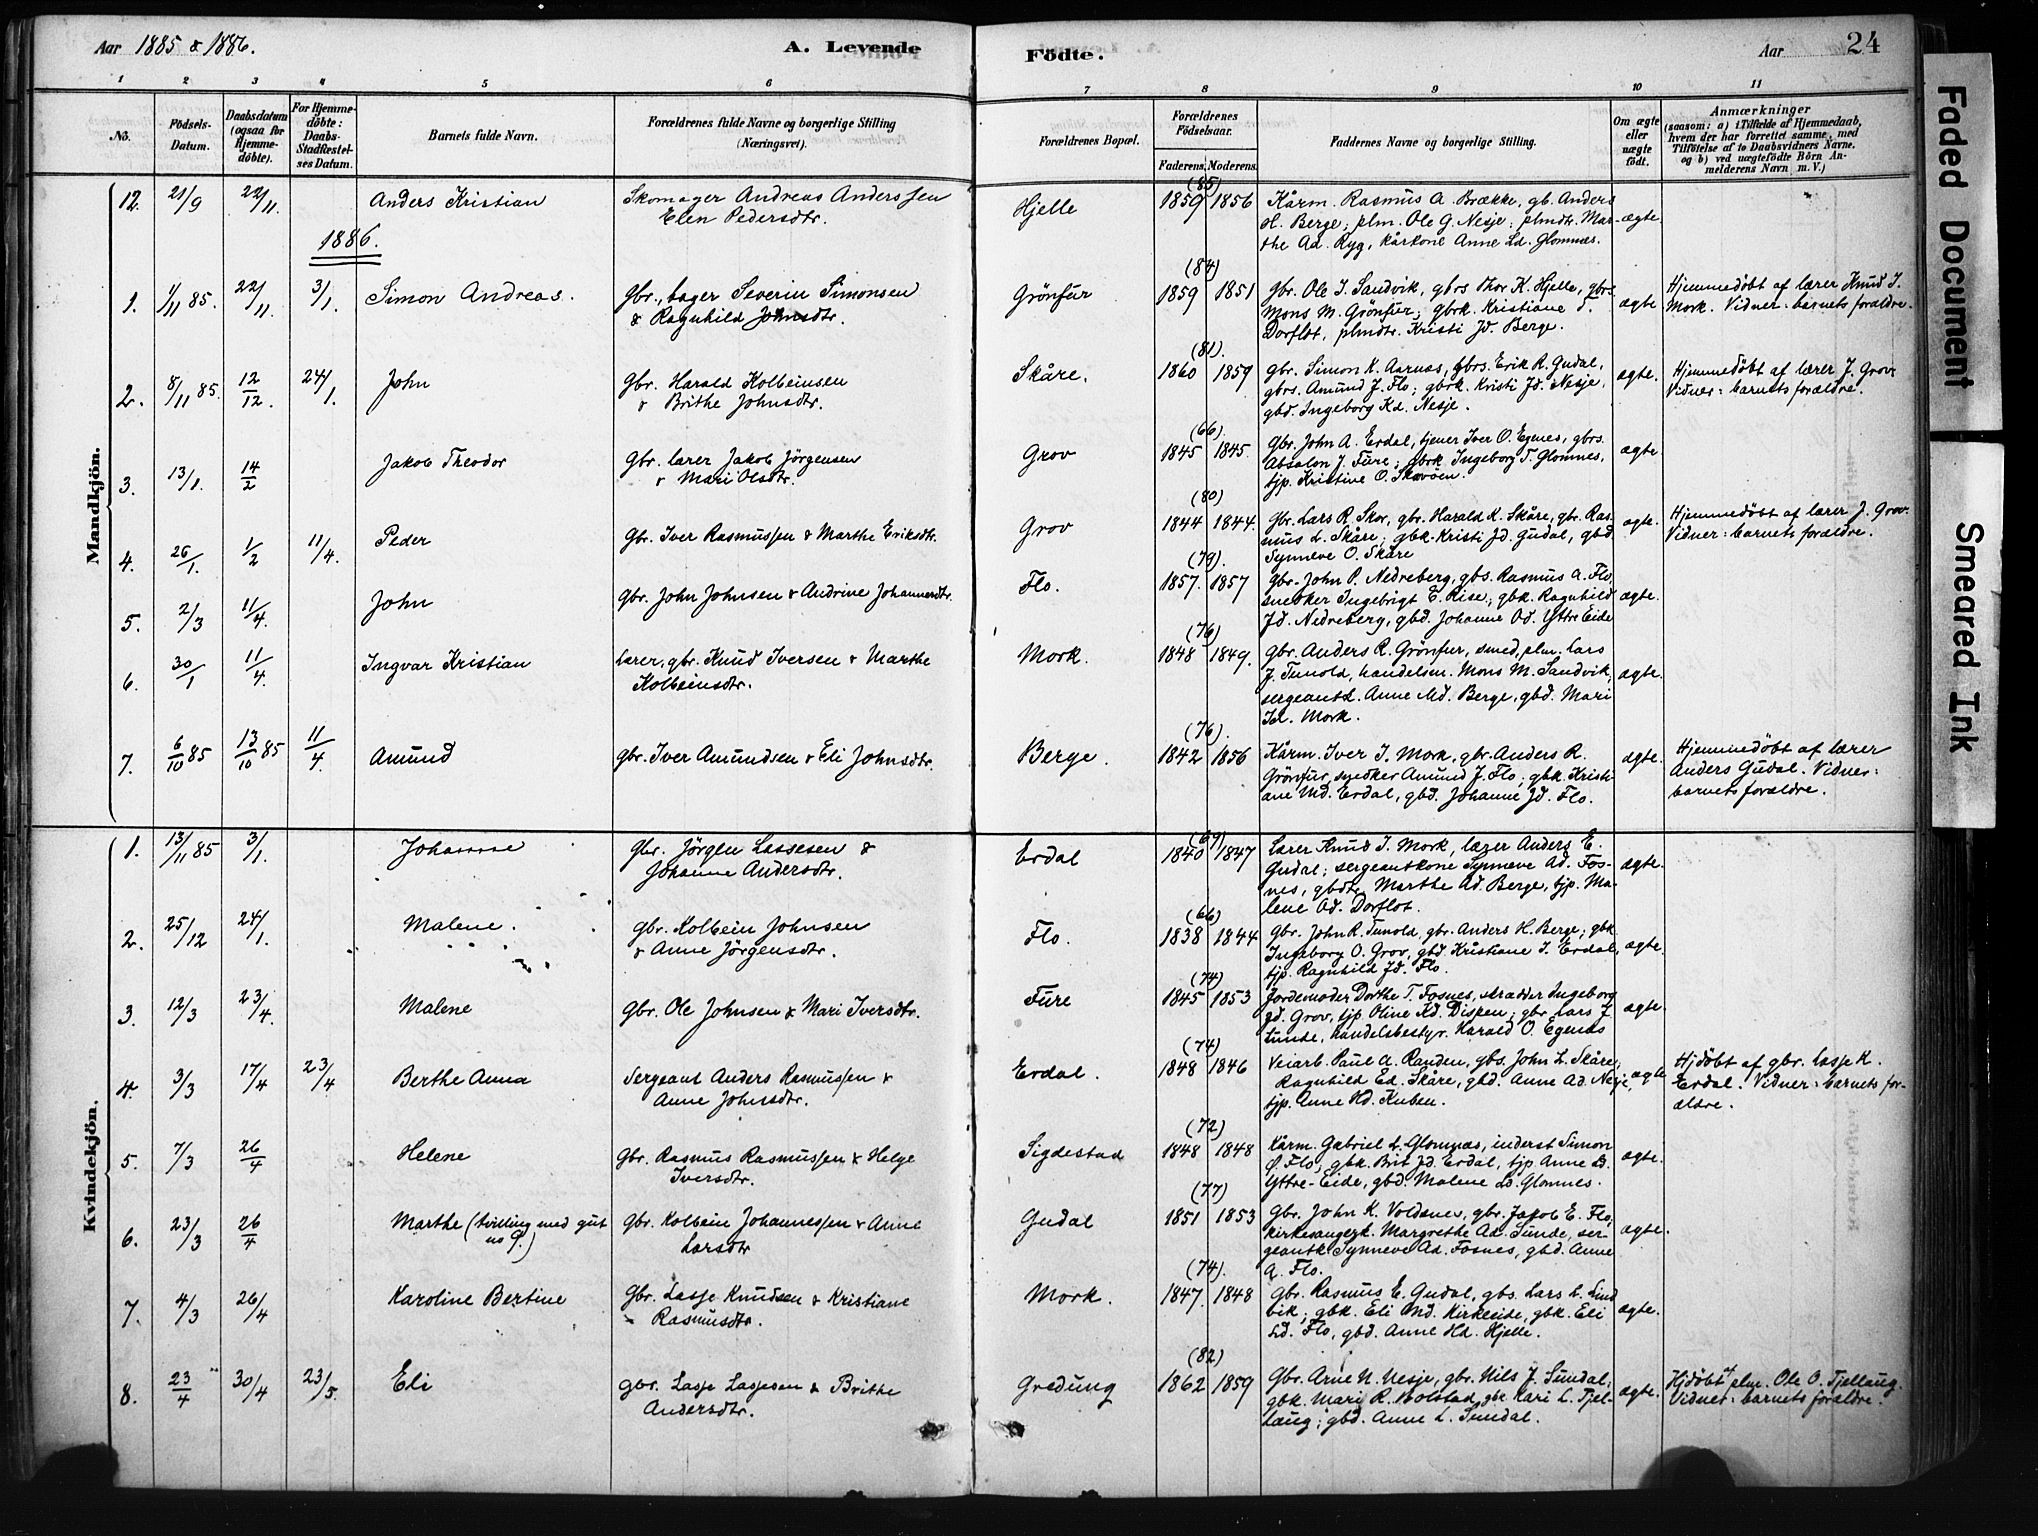 Aar 1885 & 1886. A. Levende
Födte. Aar 24
1 2 3 4 5 6
7 8 9 10 11
No.
Födsels-
Datum.
Daabsdatum
(ogsaa for
Hjemme-
döbte).
For Hjemme-
döbte:
Daabs-
Stadfæstel-
ses Datum.
Barnets fulde Navn.
Forældrenes fulde Navne og borgerlige Stilling
(Næringsvei).
Forældrenes Bopæl.
Forældrenes
Födselsaar.
Faderens. Moderens.
Faddernes Navne og borgerlige Stilling.
Om ægte
eller
uægte
födt.
Anmærkninger
(saasom: a) i Tilfælde af Hjemmedaab,
hvem der har forrettet samme, med
Tilföielse af to Daabsvidners Navne.
og b) ved uægtefödte Börn An-
melderens Navn m. V.)
Mandkjön.
12. 21/9 22/11. Anders Kristian
Skomager Andreas Anderssen
Elen Pedersdtr.
Hjelle (85)
1859 1856
Kårm. Rasmus A. Brække, gb. Anders
H. Berge; plm. Ole G. Nesje; plmdtr. Mar-
the Ad. Ryg, kårkone Anne Ld. Glomnæs.
ægte.
1886.
1. 1/11 85. 22/11. 3/1. Simon Andreas.
Gbr., bager Severin Simonsen
& Ragnhild Johnsdtr.
Grönfur (84)
1859 1851
gbr. Ole I. Sandvik, gbrs Thor K. Hjelle, gbrs.
Mons M. Grönfur; gbrk. Kristiane J.
Dorflot, plmdtr. Kristi Jd. Berge.
ægte
Hjemmedöbt af lærer Knud I.
Mork. Vidner: barnets forældre.
2. 8/11 85. 12/12. 24/1. John
Gbr. Harald Kolbeinsen
& Brithe Johnsdtr.
Skåre. (81).
1860 1859
gbr. Simon K. Aarnes, gbrs. Erik R. Gudal,
gbrs. Amund J. Flo; gbrk. Kristi Jd. Nesje,
gbd. Ingeborg Kd. Nesje.
ægte.
Hjemmedöbt af lærer J. Grov
Vidner: barnets forældre.
3. 13/1. 14/2 Jakob Theodor
Gbr. lærer Jakob Jörgensen
& Mari Olsdtr.
Grov (66).
1845 1845.
Gbr. John A. Erdal, tjener Iver O. Egnes, gbrs.
Absalon J. Fure; gbrk. Ingeborg T. Glomnes,
tjp. Kristine O. Skavöen.
ægte
4. 26/1. 1/2 11/4. Peder
Gbr. Iver Rasmussen & Marthe Eriksdtr.
Grov (80)
1844 1844.
Gbr. Lars R. Skor, gbr. Harald K. Skåre, gbr. Ras-
mus L. Skåre; gbk. Kristi Jd. Gudal, gbd
Synneve O. Skåre
ægte.
Hjemmedöbt af lærer J. Grov.
Vidner: barnets forældre.
5. 2/3 11/4. John
Gbr. John Johnsen & Andrine Johannesdtr.
Flo. (79).
1857. 1857
Gbr. John P. Nedreberg, gbs. Rasmus A. Flo,
snedker Ingebrigt E. Rise; gbk. Ragnhild
Jd. Nedreberg, gbd. Johanne Od. Yttre Eide
ægte.
6. 30/1 11/4. Ingvar Kristian
Lærer, gbr. Knud Iversen & Marthe
Kolbeinsdtr.
Mork. (76)
1848 1849.
Gbr. Anders R. Grönfur, smed, plm. Lars
J. Tunold, handelsm. Mons M. Sandvik,
sergeantk. Anne Md. Berge, gbd. Mari
Id. Mork.
ægte.
7. 6/10 85 13/10 85 11/4. Amund
gbr. Iver Amundsen & Eli Johnsdtr.
Berge. (76).
1842 1856
Kårm. Iver I. Mork, gbr. Anders R.
Grönfur, snedker Amund J. Flo; gbk. Kristi-
ane Md. Erdal, gbd. Johanne Jd. Flo.
ægte.
Hjemmedöbt af lærer
Anders Gudal. Vidner:
barnets forældre.
Kvindekjön.
1. 13/11 85 3/1. Johanne
gbr. Jörgen Lassesen &
Johanne Andersdtr.
Erdal (69)
1840 1847
Lærer Knud I. Mork, lærer Anders E.
Gudal; sergeantkone Synneve Ad. Fos-
nes, gbdtr. Marthe Ad. Berge, tjp. Ma-
lene Od. Dorflot.
ægte.
2. 25/12 24/1. Malene.
gbr. Kolbein Johnsen
& Anne Jörgensdtr.
Flo. (66)
1838 1844
Gbr. John R. Tunold, gbr. Anders H. Berge; gbk
Ingeborg O. Grov, gbd Kristiane I. Erdal,
tjp. Ragnhild Jd. Flo.
ægte.
3. 12/3 23/4. Malene
gbr. Ole Johnsen & Mari Iversdtr.
Fure (74)
1845 1853
Jordemoder Dorthe T. Fosnes, skrædder Ingeborg
Jd. Grov, tjp. Oline Kd. Dispen; gbr. Lars J.
Sunde, handelsbestyr. Harald O. Egenæs
ægte.
4. 3/3 17/4 23/4 Berthe Anna
Sergeant Anders Rasmussen &
Anne Johnsdtr.
Erdal. (74)
1848 1846
Veiarb. Paul A. Randen, gbs. John L. Skåre;
Ragnhild Ed. Skåre, gbd. Anne Ad. Nesje,
tjp. Anne Hd. Kuben.
ægte
Hjdöbt af gbr. Lasse K.
Erdal. Vidner: barnets for-
ældre.
5. 7/3 26/4 Helene
Gbr. Rasmus Rasmussen & Helge
Iversdtr.
Sigdestad (72)
1848 1848
Kårm. Gabriel L. Glomnæs, inderst Simon
O. Flo; gbk. Brit Jd. Erdal, tjp. Anne Ld.
Yttre-Eide, gbd. Malene Lo. Glomnes.
ægte.
6. 23/3 26/4 Marthe (tvilling med gut
no 9.)
Gbr. Kolbein Johannessen & Anne
Larsdtr
Gudal (77)
1851 1853
Gbr. John K. Voldsnes, gbr. Jakob E. Flo,
kirkesangerk. Margrethe Ad. Sunde, ser-
geantk Synneve Ad. Fosnes, gbd. Anne
A. Flo.
ægte.
7. 4/3 26/4 Karoline Bertine
Gbr. Lasse Knudsen & Kristiane
Rasmusdtr.
Mork. (74).
1847. 1848
Gbr. Rasmus E. Gudal, gbs. Lars L. Lind
vik; gbk. Eli Md. Kirkeide, gbk. Eli
Ld. Flo, gbd. Anne Hd. Hjelle.
ægte.
8. 23/4 30/4 23/5. Eli
gbr. Lasse Lassesen & Brithe
Andersdtr.
Gredung (82)
1862 1859
Gbr. Arne N. Nesje, gbr. Nils J. Sundal;
gbk. Mari R. Bolstad, gbk Kari L. Tjel-
laug; gbd. Anne L. Sundal.
ægte.
Hjdöbt af plm. Ole O. Tjellaug.
Vidner: barnets forældre.
Faded Document
Smeared Ink